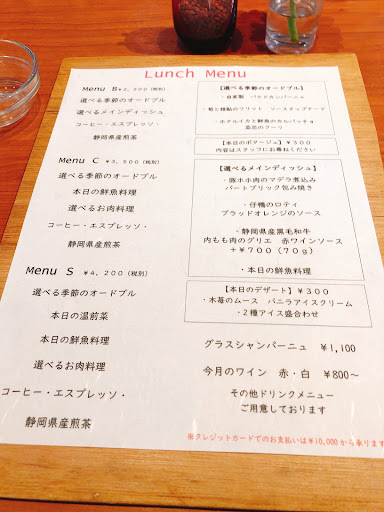 Lunch Menu
Menu B ¥2,300(税別)
選べる季節のオードブル
選べるメインディッシュ
コーヒー・エスプレッソ・
静岡県産煎茶
Menu C ¥3,500(税別)
選べる季節のオードブル
本日の鮮魚料理
選べるお肉料理
コーヒー・エスプレッソ・
静岡県産煎茶
Menu S ¥4,200(税別)
選べる季節のオードブル
本日の温前菜
本日の鮮魚料理
選べるお肉料理
コーヒー・エスプレッソ・
静岡県産煎茶
【選べる季節のオードブル】
・自家製 パテドカンパーニュ
・筍と穂鮎のフリット ソースタップナード
・ホタルイカと鮮魚のカルパッチョ
菜花のクーリ
【本日のポタージュ】¥300
内容はスタッフにお尋ねください
【選べるメインディッシュ】
・豚ホホ肉のマデラ煮込み
パートブリック包み焼き
・仔鴨のロティ
ブラッドオレンジのソース
・静岡県産黒毛和牛
内もも肉のグリエ 赤ワインソース
+¥700(70g)
・本日の鮮魚料理
【本日のデザート】¥300
・木苺のムース バニラアイスクリーム
・2種アイス盛合わせ
グラスシャンパーニュ ¥1,100
今月のワイン 赤・白 ¥800~
その他ドリンクメニュー
ご用意しております
※クレジットカードでのお支払いは¥10,000から承ります